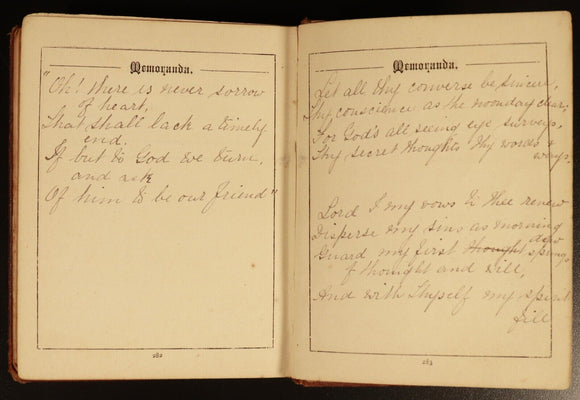 Memoranda.
"Oh! there is never sorrow
of heart,
That shall lack a timely
end.
If but to God we turn,
and ask
Of him to be our friend"
282
Memoranda.
Let all thy converse be sincere,
Thy conscience as the noonday clear,
For God's all seeing eye surveys,
Thy secret thoughts thy words &
ways.
Lord I my vows to thee renew
Disperse my sins as morning
dew
Guard my first thought springs
of thought and will,
And with Thyself my spirit
fill
283